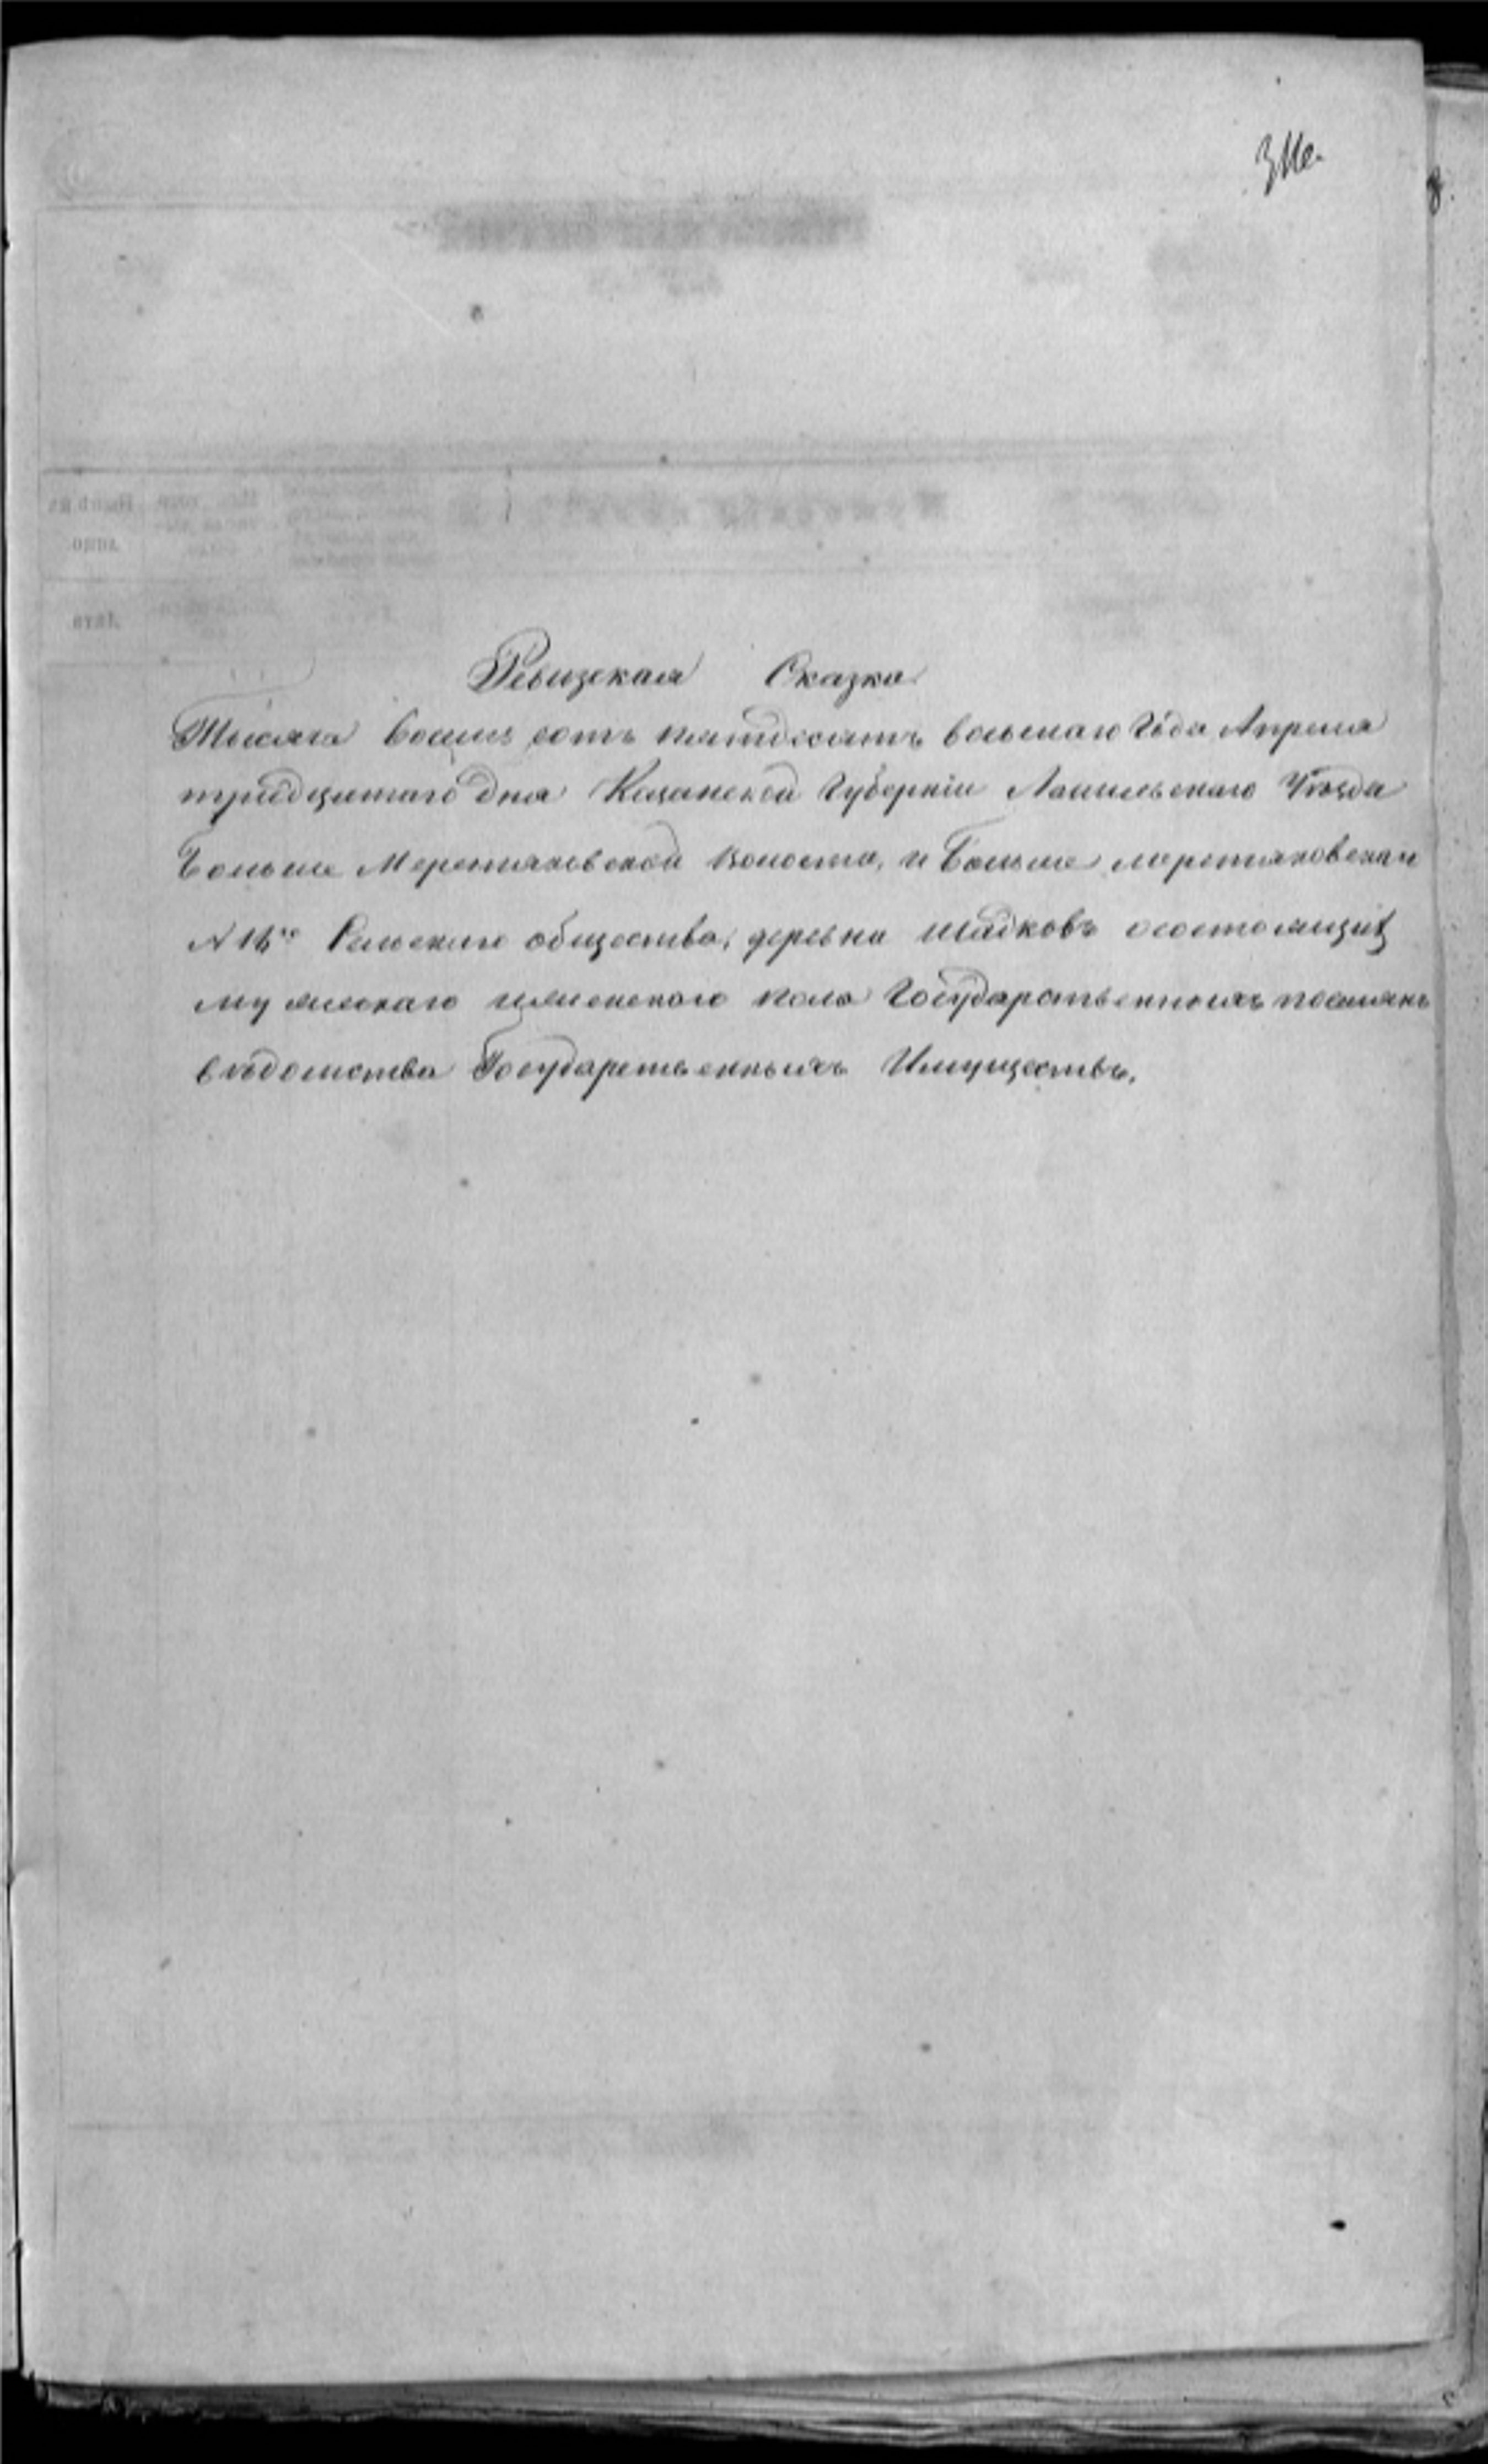 Ревизская Сказка
Тысяча восемь сотъ пятидесятъ восьмаго Года Апреля
тридцатаго дня Казанской Губерніи Лаишевскаго Уѣзда
Больше Меретяковской волости, и Больше меретяковскаго
Сельскаго общества, деревни Шадковъ о состоящихъ
мужескаго и женскаго пола Государственныхъ поселянъ
вѣдомства Государственныхъ Имуществъ.